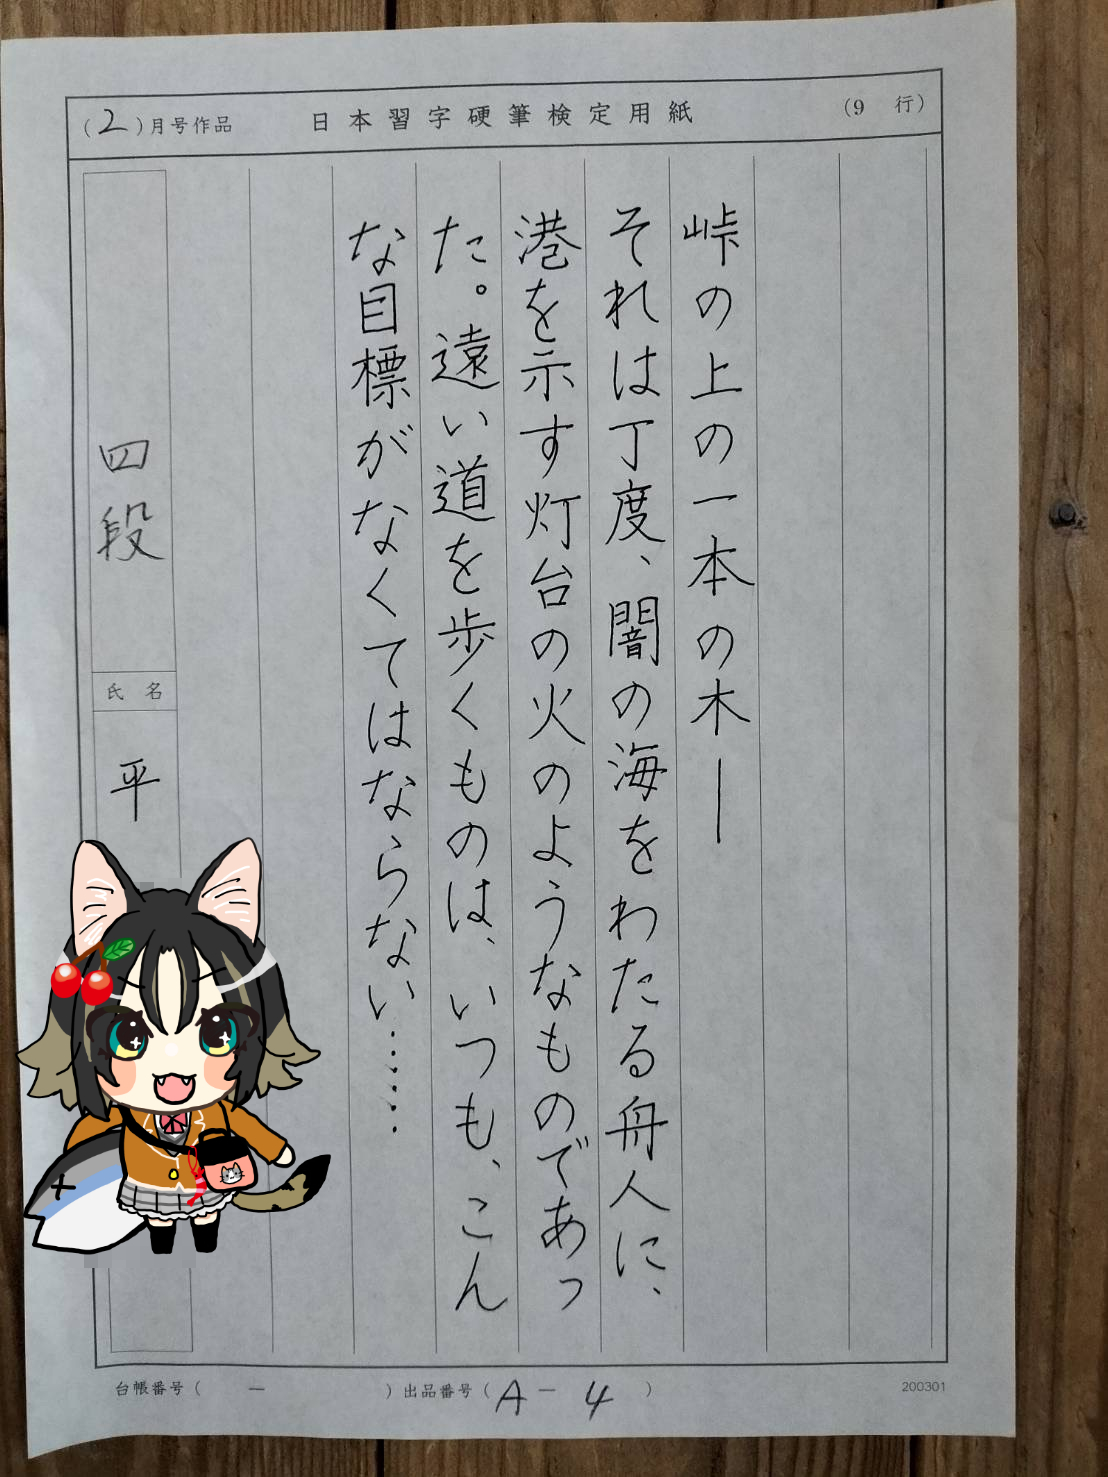 (2)月号作品
日本習字硬筆検定用紙
(9 行)
峠の上の一本の木―
それは丁度、闇の海をわたる舟人に、
港を示す灯台の火のようなものであっ
た。遠い道を歩くものは、いつも、こん
な目標がなくてはならない……
四段
氏名
平
台帳番号( ― )出品番号(A ― 4 )
200301